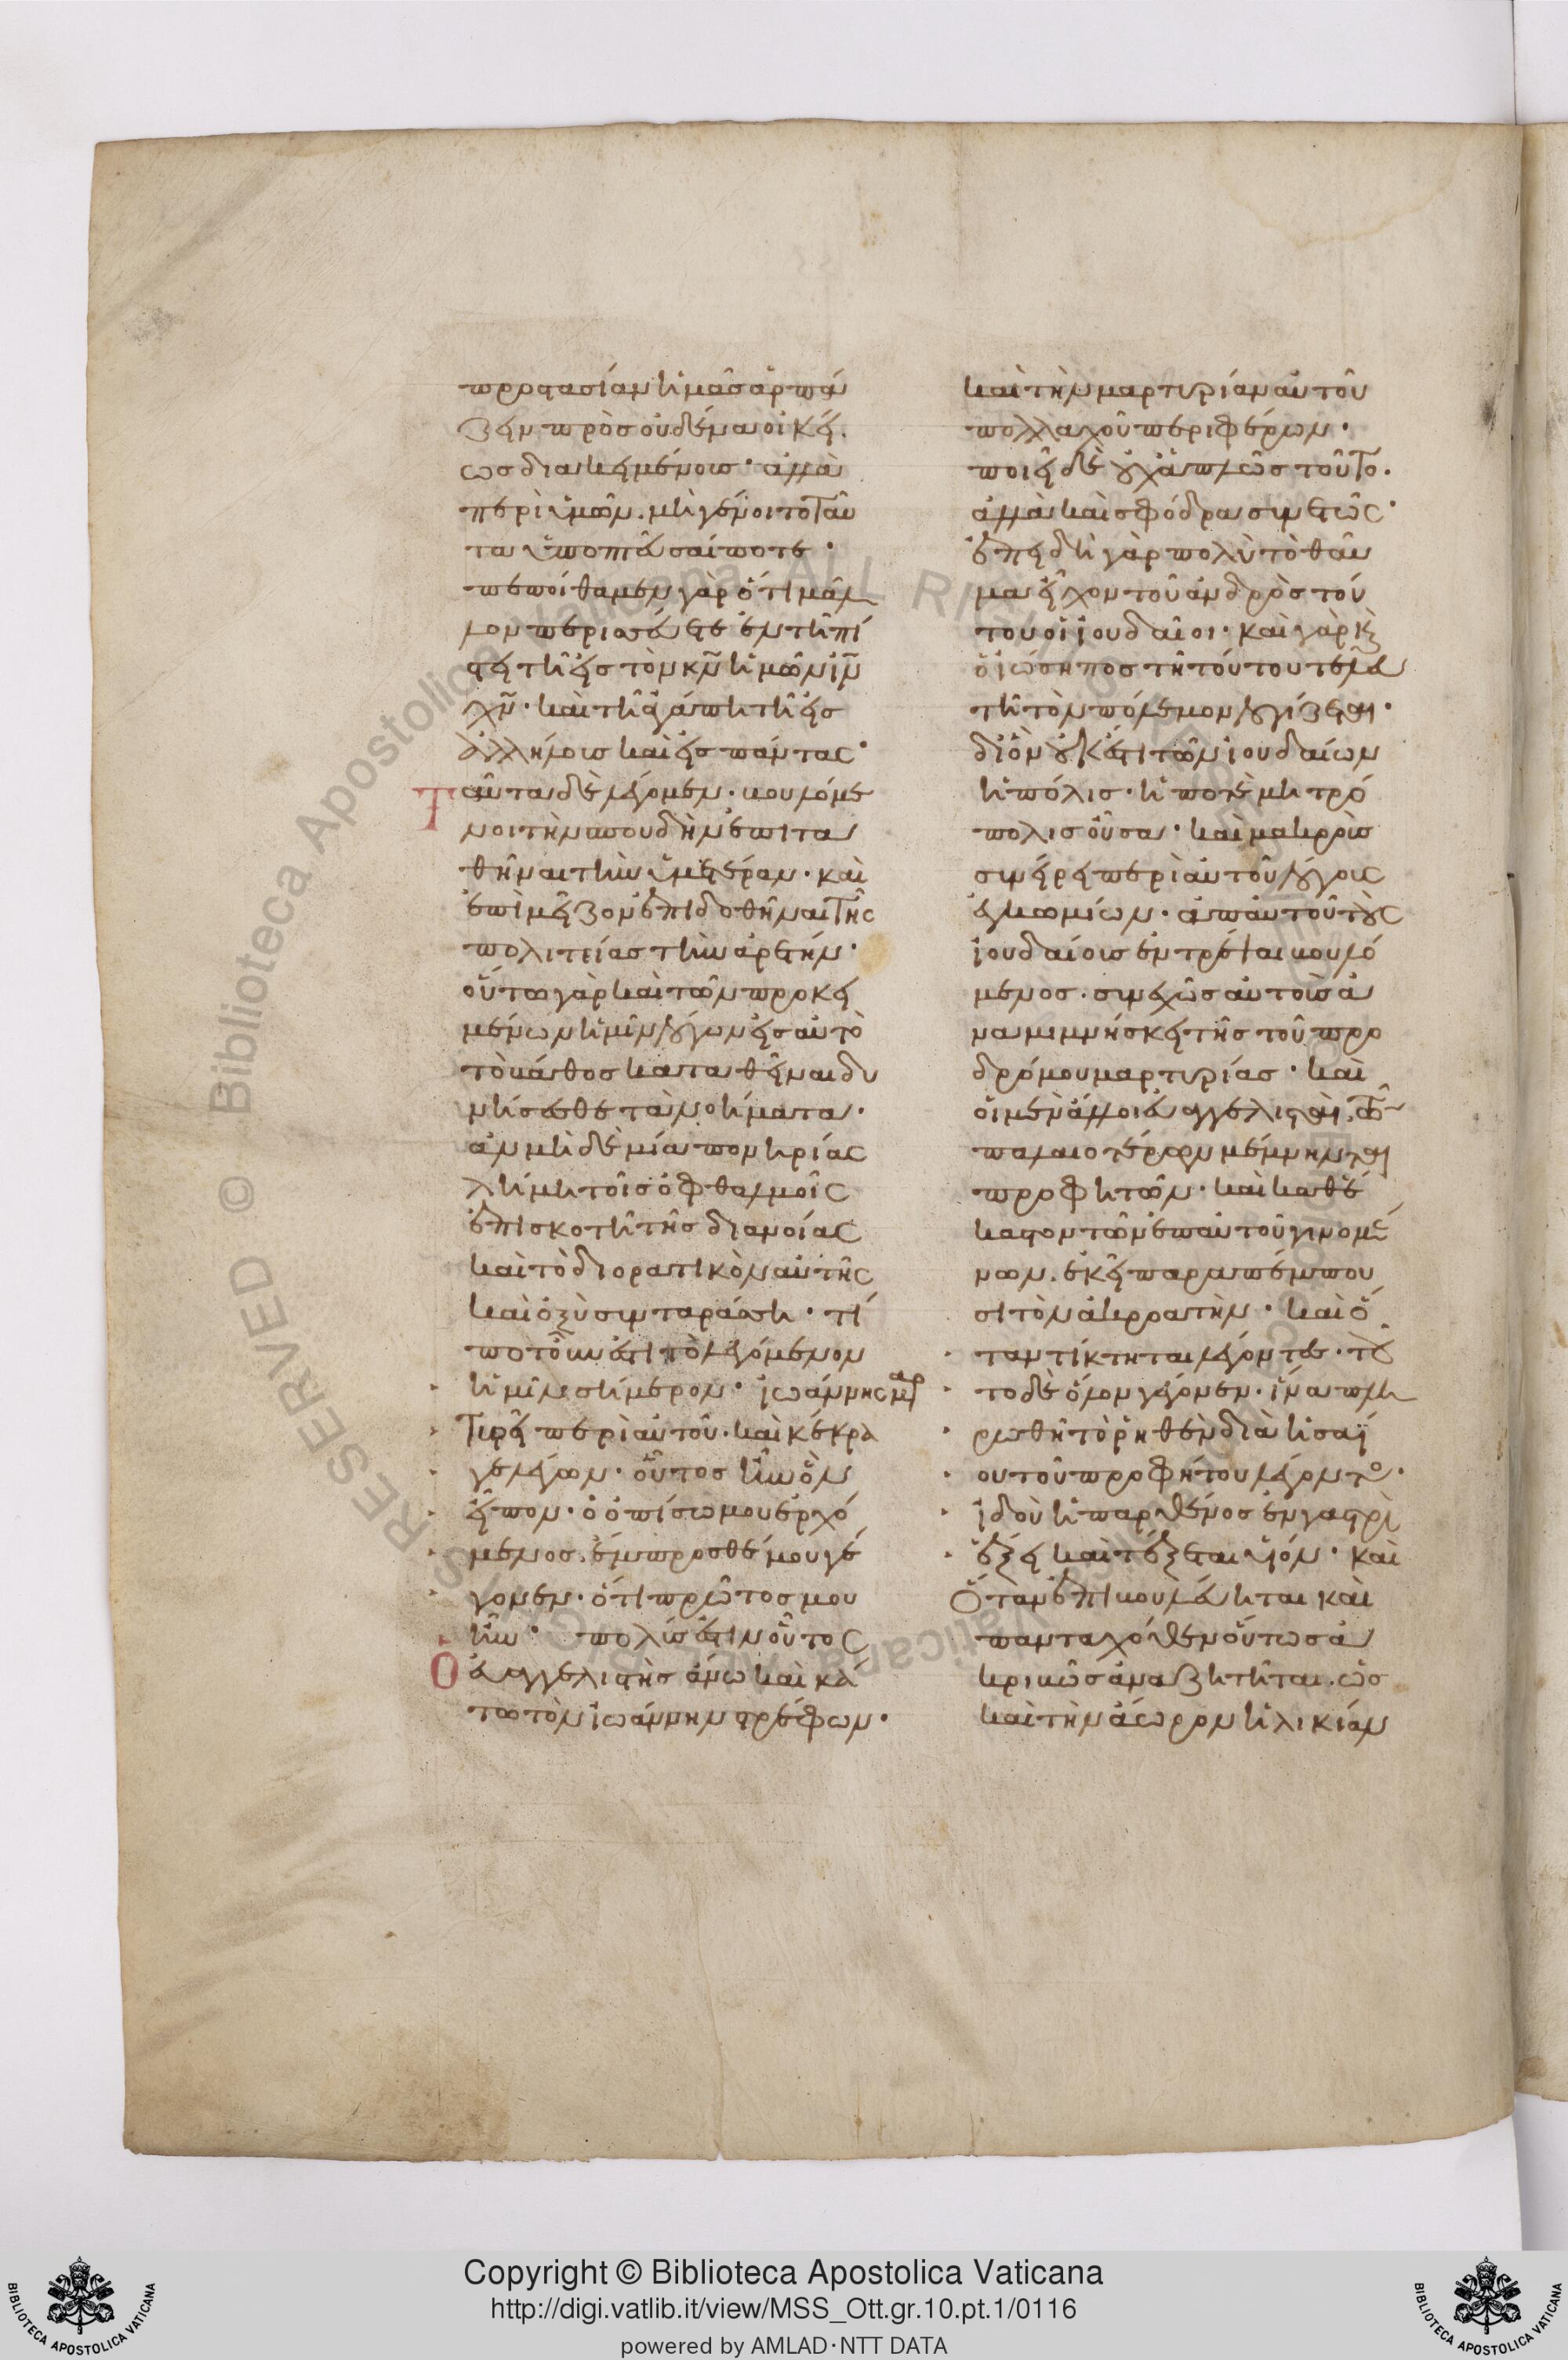 προστασίαν ἡμᾶς ἁρπά
ζειν πρὸς οὐδένα οἰκεί
ως διακειμένοις· ἀλλὰ
περὶ ὑμῶν, μὴ γένοιτο ταῦ
τα ὑποπτεῦσαί ποτε·
πεποίθαμεν γὰρ ὅτι μᾶλ
λον περισσεύετε ἐν τῆ πί
στει τῆ εἰς τὸν κ̅ν̅ ἡμῶν ι̅ν̅
χ̅ν̅· καὶ τῆ ἀγάπη τῆ εἰς
ἀλλήλοις καὶ εἰς πάντας·
Ταῦτα δὲ λέγομεν· βουλόμε
νοι τὴν σπουδὴν ἐπιτα
θῆναι τὴν ὑμετέραν· καὶ
ἐπὶ μεῖζον ἐπιδοθῆναι τῆς
πολιτείας τὴν ἀρετήν·
οὕτω γὰρ καὶ τῶν προκει
μένων ἡμῖν λόγων εἰς αὐτὸ
τὸ βάθος καταθεῖναι δυ
νήσεσθε τὰ νοήματα·
ἂν μὴ δὲ μία πονηρίας
λήμη τοῖς ὀφθαλμοῖς
ἐπισκοτῆ τῆς διανοίας
καὶ τὸ διορατικὸν αὐτῆς
καὶ ὀξὺ συνταράσση· τί
ποτ' οὖν ἐστι τὸ λεγόμενον
ἡμῖν σήμερον· ἰωάννης μαρ
τυρεῖ περὶ αὐτοῦ· καὶ κέκρα
γε λέγων· οὗτος ἦν ὃν
εἶπον· ὁ ὀπίσω μου ἐρχό
μενος, ἔμπροσθέ μου γέ
γονεν· ὅτι πρῶτός μου
ἦν· πολύς ἐστιν οὗτος
Ὁ εὐαγγελιστὴς ἄνω καὶ κά
τω τὸν ἰωάννην στρέφων·
καὶ τὴν μαρτυρίαν αὐτοῦ
πολλαχοῦ περιφέρων·
ποιεῖ δὲ οὐχ ἁπλῶς τοῦτο·
ἀλλὰ καὶ σφόδρα συνετῶς·
ἐπειδὴ γὰρ πολὺ τὸ θαῦ
μα εἶχον τοῦ ἀνδρὸς τού
του οἱ ἰουδαῖοι· καὶ γὰρ καὶ
ὁ ἰώσηπος τῆ τούτου τελευ
τῆ τὸν πόλεμον λογίζεται·
δι' ὃν οὐκέτι τῶν ἰουδαίων
ἡ πόλις· ἡ ποτὲ μητρό
πολις οὖσα· καὶ μακροὺς
συνείρει περὶ αὐτοῦ λόγους
ἐγκωμίων· ἀπ' αὐτοῦ τοὺς
ἰουδαίους ἐντρέψαι βουλό
μενος· συνεχῶς αὐτοὺς ἀ
ναμιμνήσκει τῆς τοῦ προ
δρόμου μαρτυρίας· καὶ
οἱ μὲν ἄλλοι εὐαγγελισταὶ, τῶν
παλαιοτέρων μέμνηνται
προφητῶν· καὶ καθ' ἕ
καστον τῶν ἐπ' αὐτοῦ γινομέ
νων, ἐκεῖ παραπέμπου
σι τὸν ἀκροατὴν· καὶ ὅ
ταν τίκτηται λέγοντες· τοῦ
το δὲ ὅλον γέγονεν· ἵνα πλη
ρωθῆ τὸ ῥηθὲν διὰ ἡσαΐ
ου τοῦ προφήτου λέγοντος·
ἰδοὺ ἡ παρθένος ἐν γαστρὶ
ἕξει καὶ τέξεται υἱόν· καὶ
Ὅταν ἐπιβουλεύηται καὶ
πανταχόθεν οὕτως ἀ
κριβῶς ἀναζητῆται, ὡς
καὶ τὴν ἄωρον ἡλικίαν
Copyright © Biblioteca Apostolica Vaticana
http://digi.vatlib.it/view/MSS_Ott.gr.10.pt.1/0116
powered by AMLAD·NTT DATA